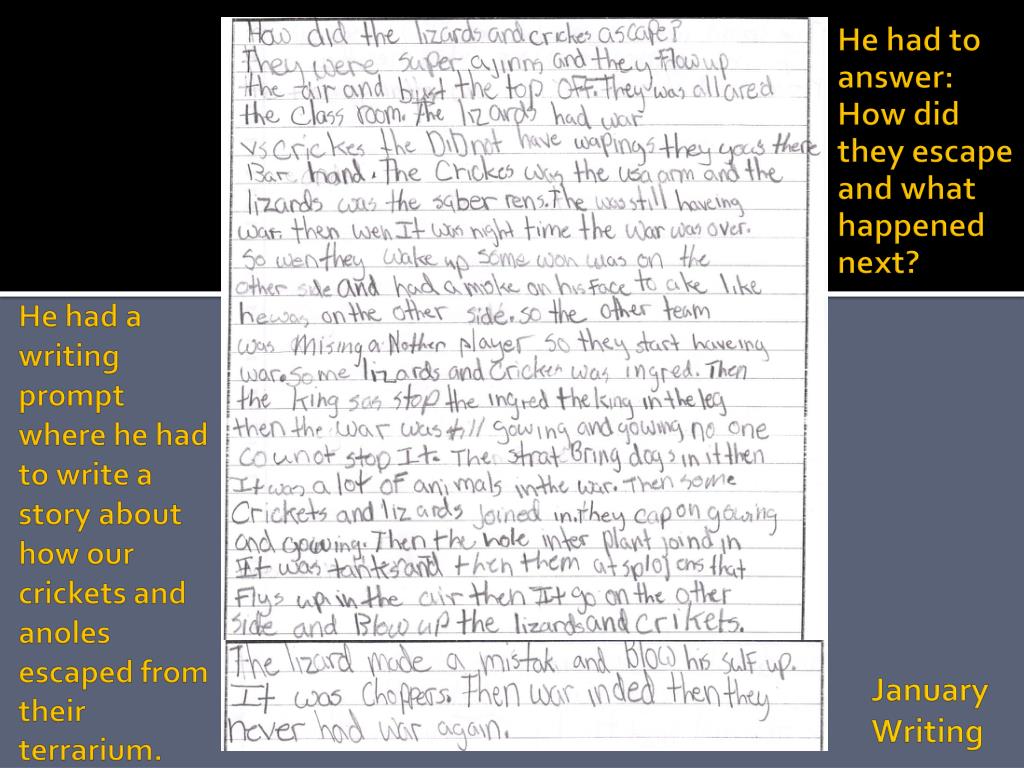 How did the lizards and crickes ascape?
They were super ajinns and they flow up
the air and bust the top off. They was all ared
the Class room. The lizards had war
vs Crickes the DiD not have wapings they yous there
Bar hand. The Crickes was the usa arm and the
lizards was the saber rens. The was still haveing
war. then wen It was night time the war was over.
So wen they wake up some won was on the
other side and had a moke on his face to ake like
he was on the other side. so the other team
was Mising a Nother player so they start haveing
war. Some lizards and Crickes was ingred. Then
the King sas stop the ingred the king in the leg
then the war was still gowing and gowing no one
counot stop It. The strat Bring dogs in it then
It was a lot of animals in the war. Then some
Crickets and lizards joined in. they cap on gowing
and gowing. Then the hole inter plant joind in
It was tankes and then them atsplojens that
flys up in the air then It go on the other
side and Blow up the lizards and crikets.
The lizard made a mistak and Blow his sulf up.
It was Choppers. Then war inded then they
never had war again.
He had to
answer:
How did
they escape
and what
happened
next?
He had a
writing
prompt
where he had
to write a
story about
how our
crickets and
anoles
escaped from
their
terrarium.
January
Writing